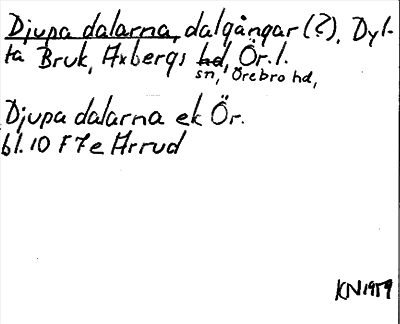 Djupa dalarna, dalgångar (?), Dyl-
ta Bruk, Axbergs hd, Ör. l.
sn, Örebro hd,
Djupa dalarna ek Ör.
bl. 10 F 7 e Arrud
KN 1959